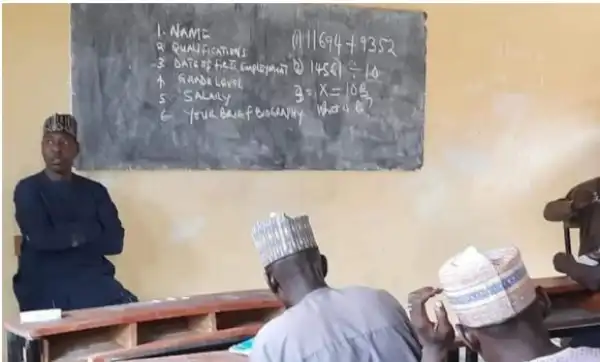 1. NAME
2 QUALIFICATIONS
3 DATE OF FIRST EMPLOYMENT
4 GRADE LEVEL
5 SALARY
6 YOUR BRIEF BIOGRAPHY
(1) 11694 + 9352
2) 14561 ÷ 10
3 = X = 10
What is